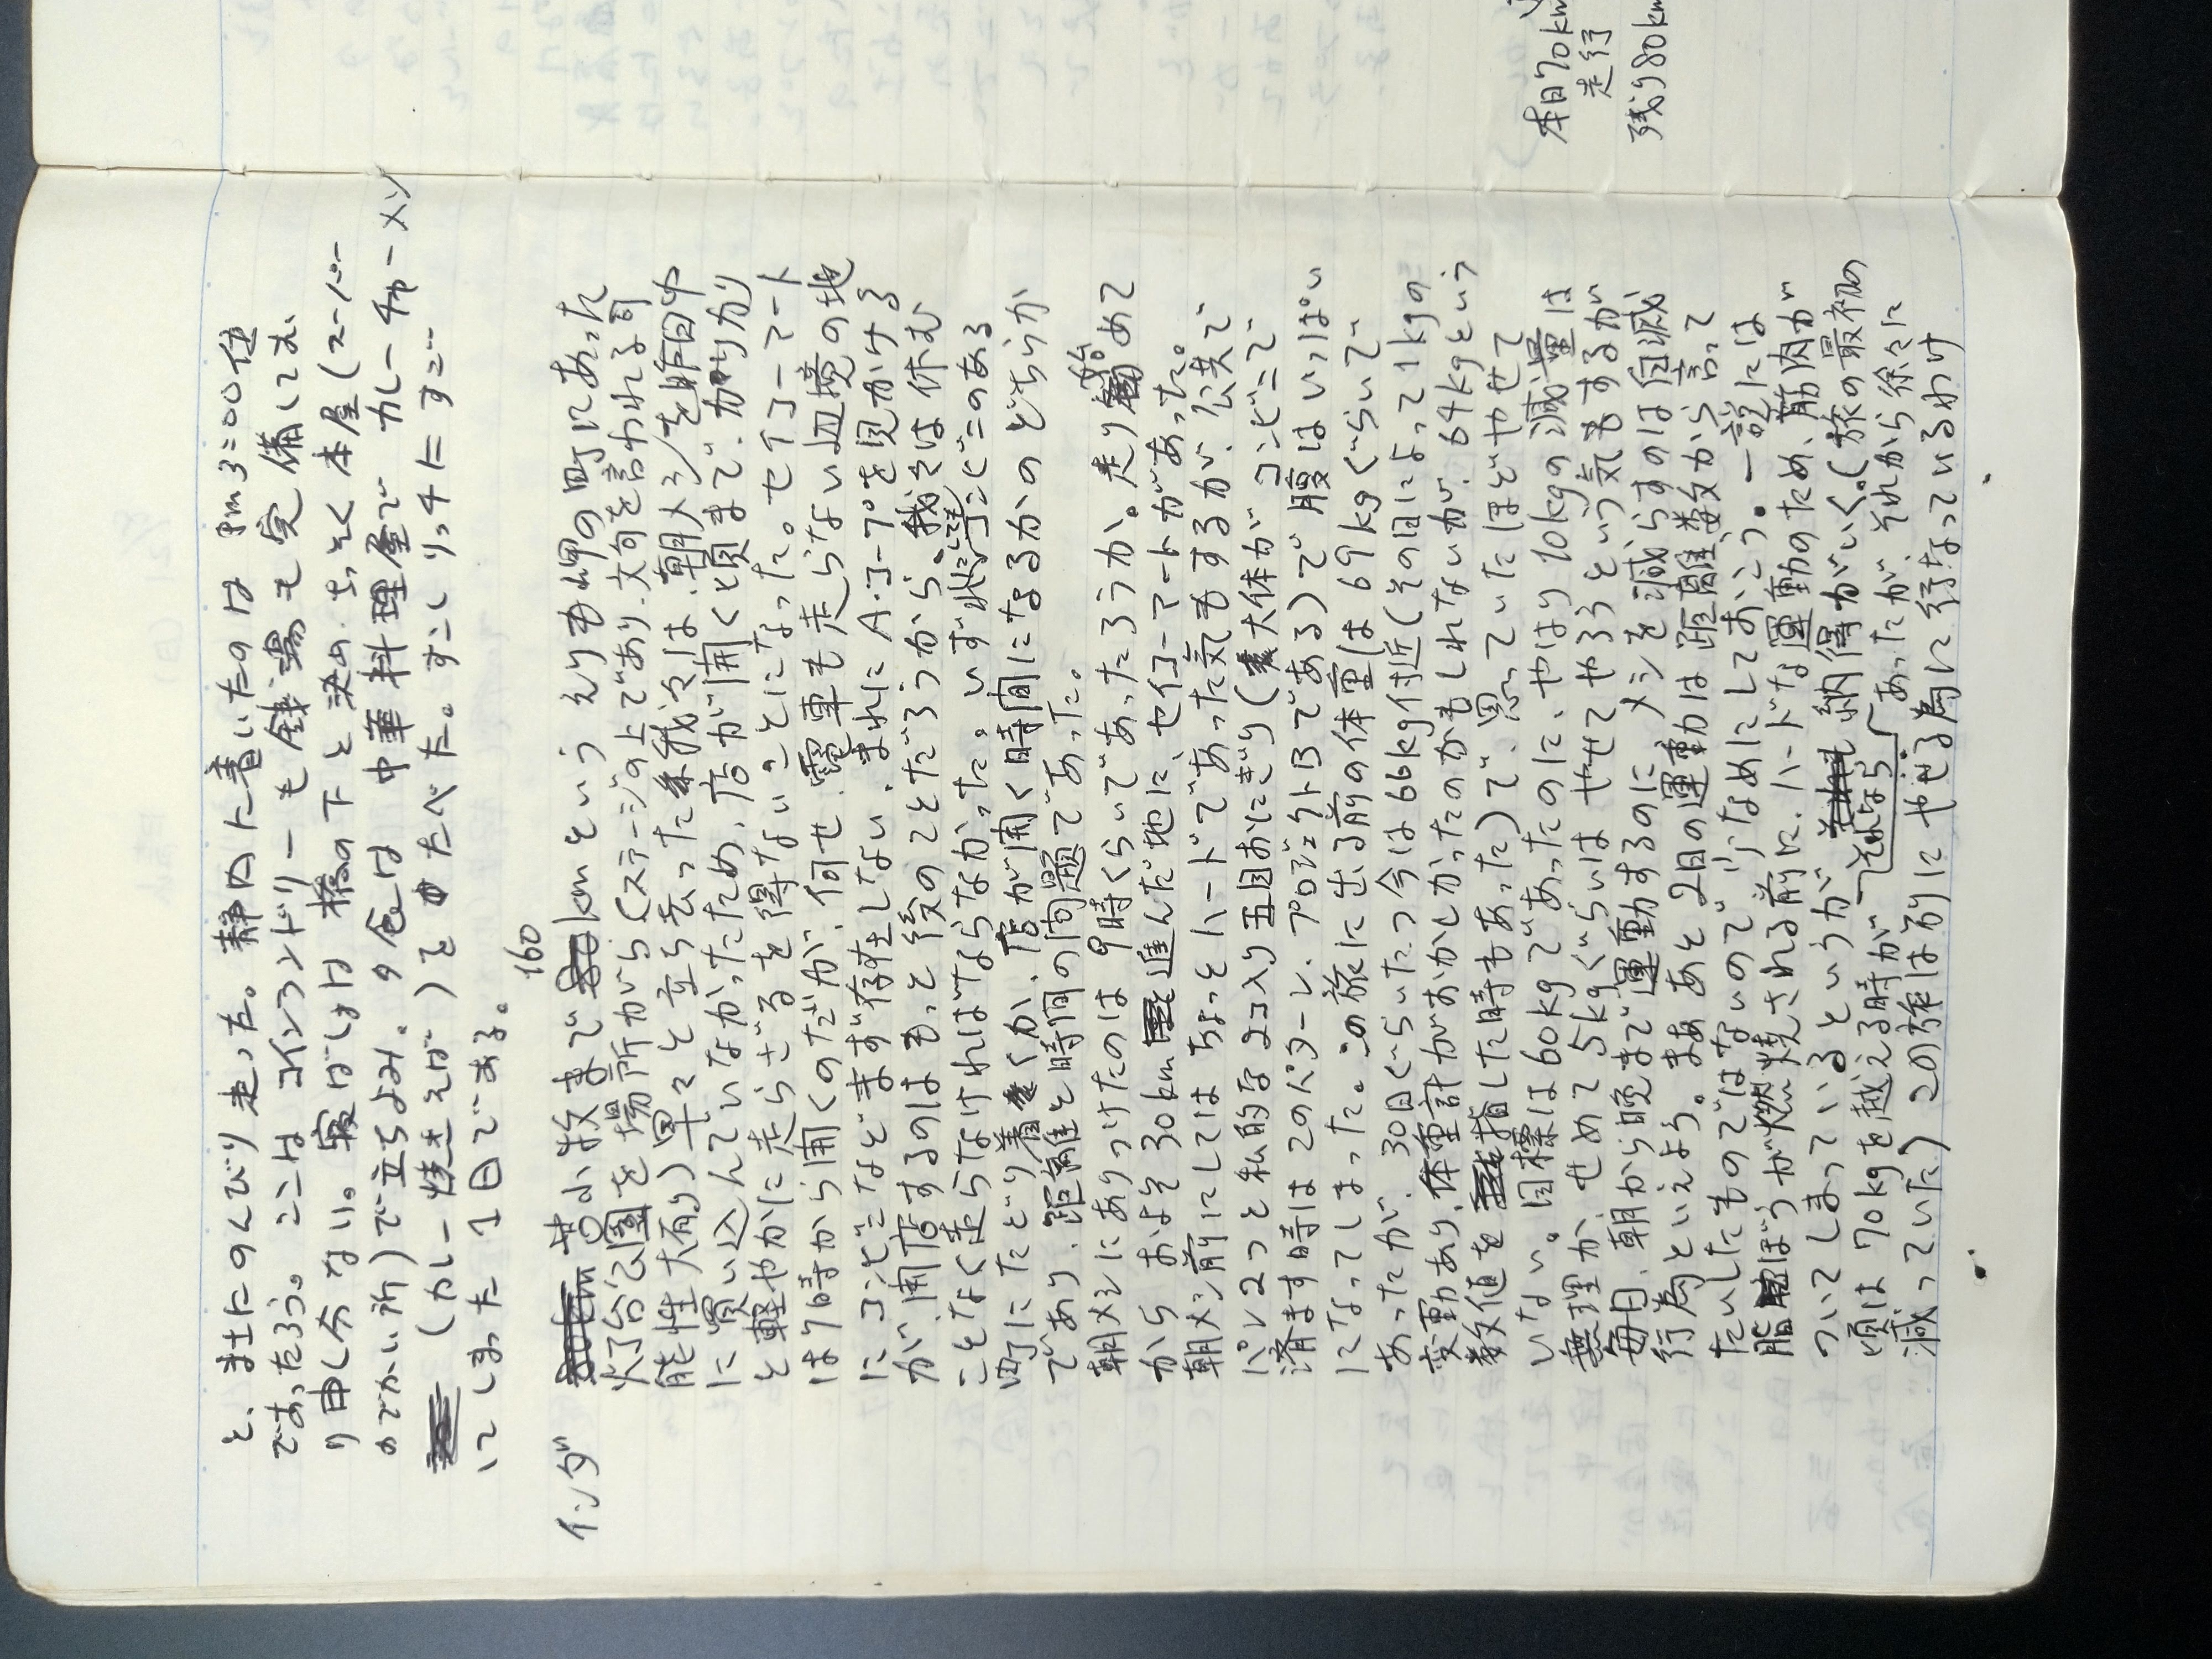 と、またのんびり走った。静内に着いたのは pm3:00位
であったろう。ここは コインランドリーも銭湯も完備してお
り申し分ない。寝ばしょは 橋の下と決め さっそく本屋(スーパー
のでかい所)で立ちよみ。夕食は 中華料理屋で カレーチャーメン
(カレー焼きそば)を たべた。すこしリッチにすご
してしまった 1日である。
苫小牧まで 160 kmという えりも岬の町にあった
インダ
灯台公園を場所がら(ステージの上であり、文句を言われる可
能性大有り)早々と立ち去った我々は、朝メシを昨日中
に買い込んでいなかったため、店が開く頃まで、かりかり
と軽やかに走らざるを得ないことになった。セイコーマート
は7時から開くのだが、何せ、電車も走らない辺境の地
にコンビニなどまず存在しない、まれにA・コープを見かける
が、開店するのはもっと後のことだろうから。我々は休む
ことなく走らなければならなかった。いずれにせよコンビニのある
町にたどり着くか、店が開く時間になるかのどちらか
であり、距離と時間の問題であった。
朝メシにありつけたのは 9時くらいであったろうか。走り始めて
から およそ30km 進んだ地に、セイコーマートがあった。
朝メシ前にしては ちょっとハードであった気もするが、公共で
パン2つと私的な2コ入り五目おにぎり(大体が コンビニで
済ます時は このパターン、プロジェクトBである)で 腹はいっぱい
になってしまった。この旅に出る前の体重は 69kgぐらいで
あったが、30日ぐらいたつ今は66kg付近(その日によって1kgの
変動あり、体重計がおかしかったのかもしれないが、64kgという
数値を 指した時もあった)で、思っていたほどやせて
いない。目標は60kgであったのに、やはり10kgの減量は
無理か、せめて5kgぐらいは やせてやろうという気もするが
毎日、朝から晩まで運動するのに メシを減らすのは自滅
行為といえよう。まあ あと2日の運動は 距離数から言って
たいしたものではないので 少なめにしておこう。一説には
脂ぼうが燃焼される前に、ハードな運動のため、筋肉が
ついてしまっているというが それなら納得がいく。(旅の最初の
頃は70kgを越える時が あったが それから徐々に
減っていた) この旅は別にやせる為に行なっているわけ
本日70km
走行
残り80km